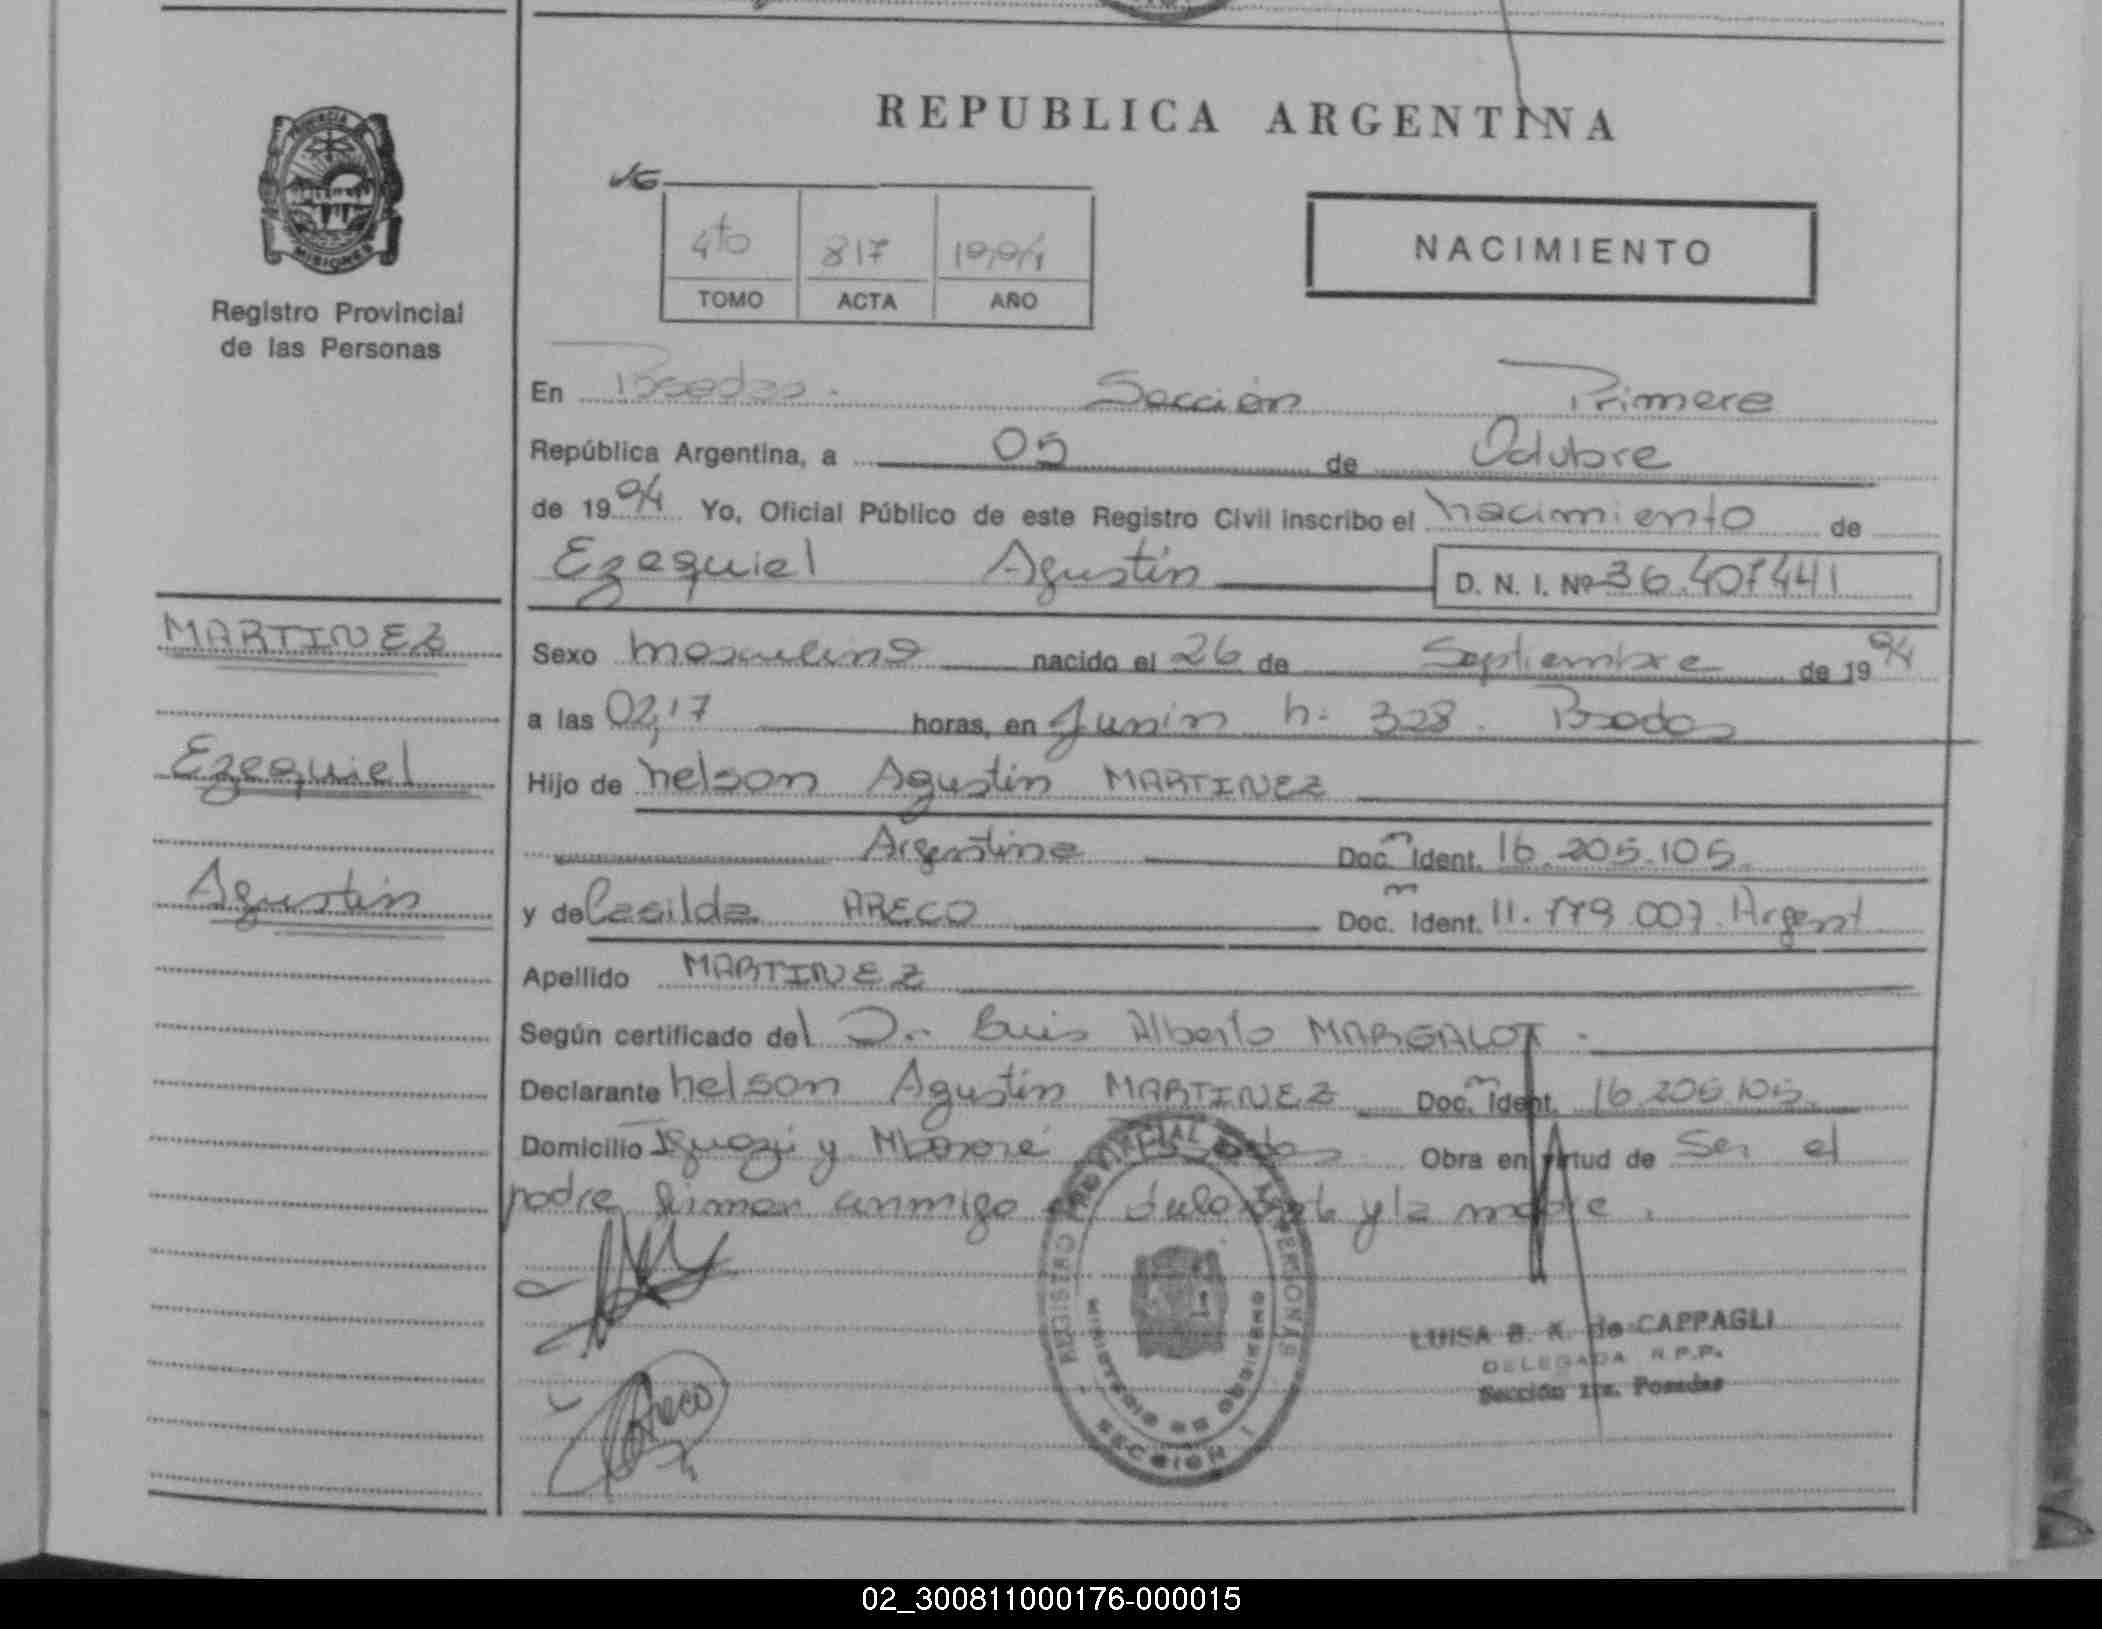 REPUBLICA ARGENTINA
PROVINCIA DE
MISIONES
Registro Provincial
de las Personas
4to 817 1994
TOMO ACTA AÑO
NACIMIENTO
En Posadas. Sección Primera
República Argentina, a 05 de Octubre
de 1994 Yo, Oficial Público de este Registro Civil inscribo el nacimiento de
Ezequiel Agustín D. N. I. Nº 36.407441
MARTINEZ
Ezequiel
Agustín
Sexo masculino nacido el 26 de Septiembre de 1994
a las 02,17 horas, en Junín n. 328. Posadas
Hijo de nelson Agustín MARTINEZ
Argentina Doc. m Ident. 16.205.105.
y de Casilda ARECO Doc. m Ident. 11.779.007. Argent
Apellido MARTINEZ
Según certificado del Dr. Luis Alberto MARGALOT.
Declarante nelson Agustín MARTINEZ Doc. m Ident. 16.205.105.
Domicilio Iguazú y Mbororé Posadas Obra en virtud de Ser el
padre firman conmigo el y la madre.
Areco
REGISTRO PROVINCIAL DE LAS PERSONAS
MINISTERIO DE GOBIERNO
SECCION 1
LUISA B. K. de CAPPAGLI
DELEGADA R.P.P.
Sección 1ra. Posadas
02_300811000176-000015